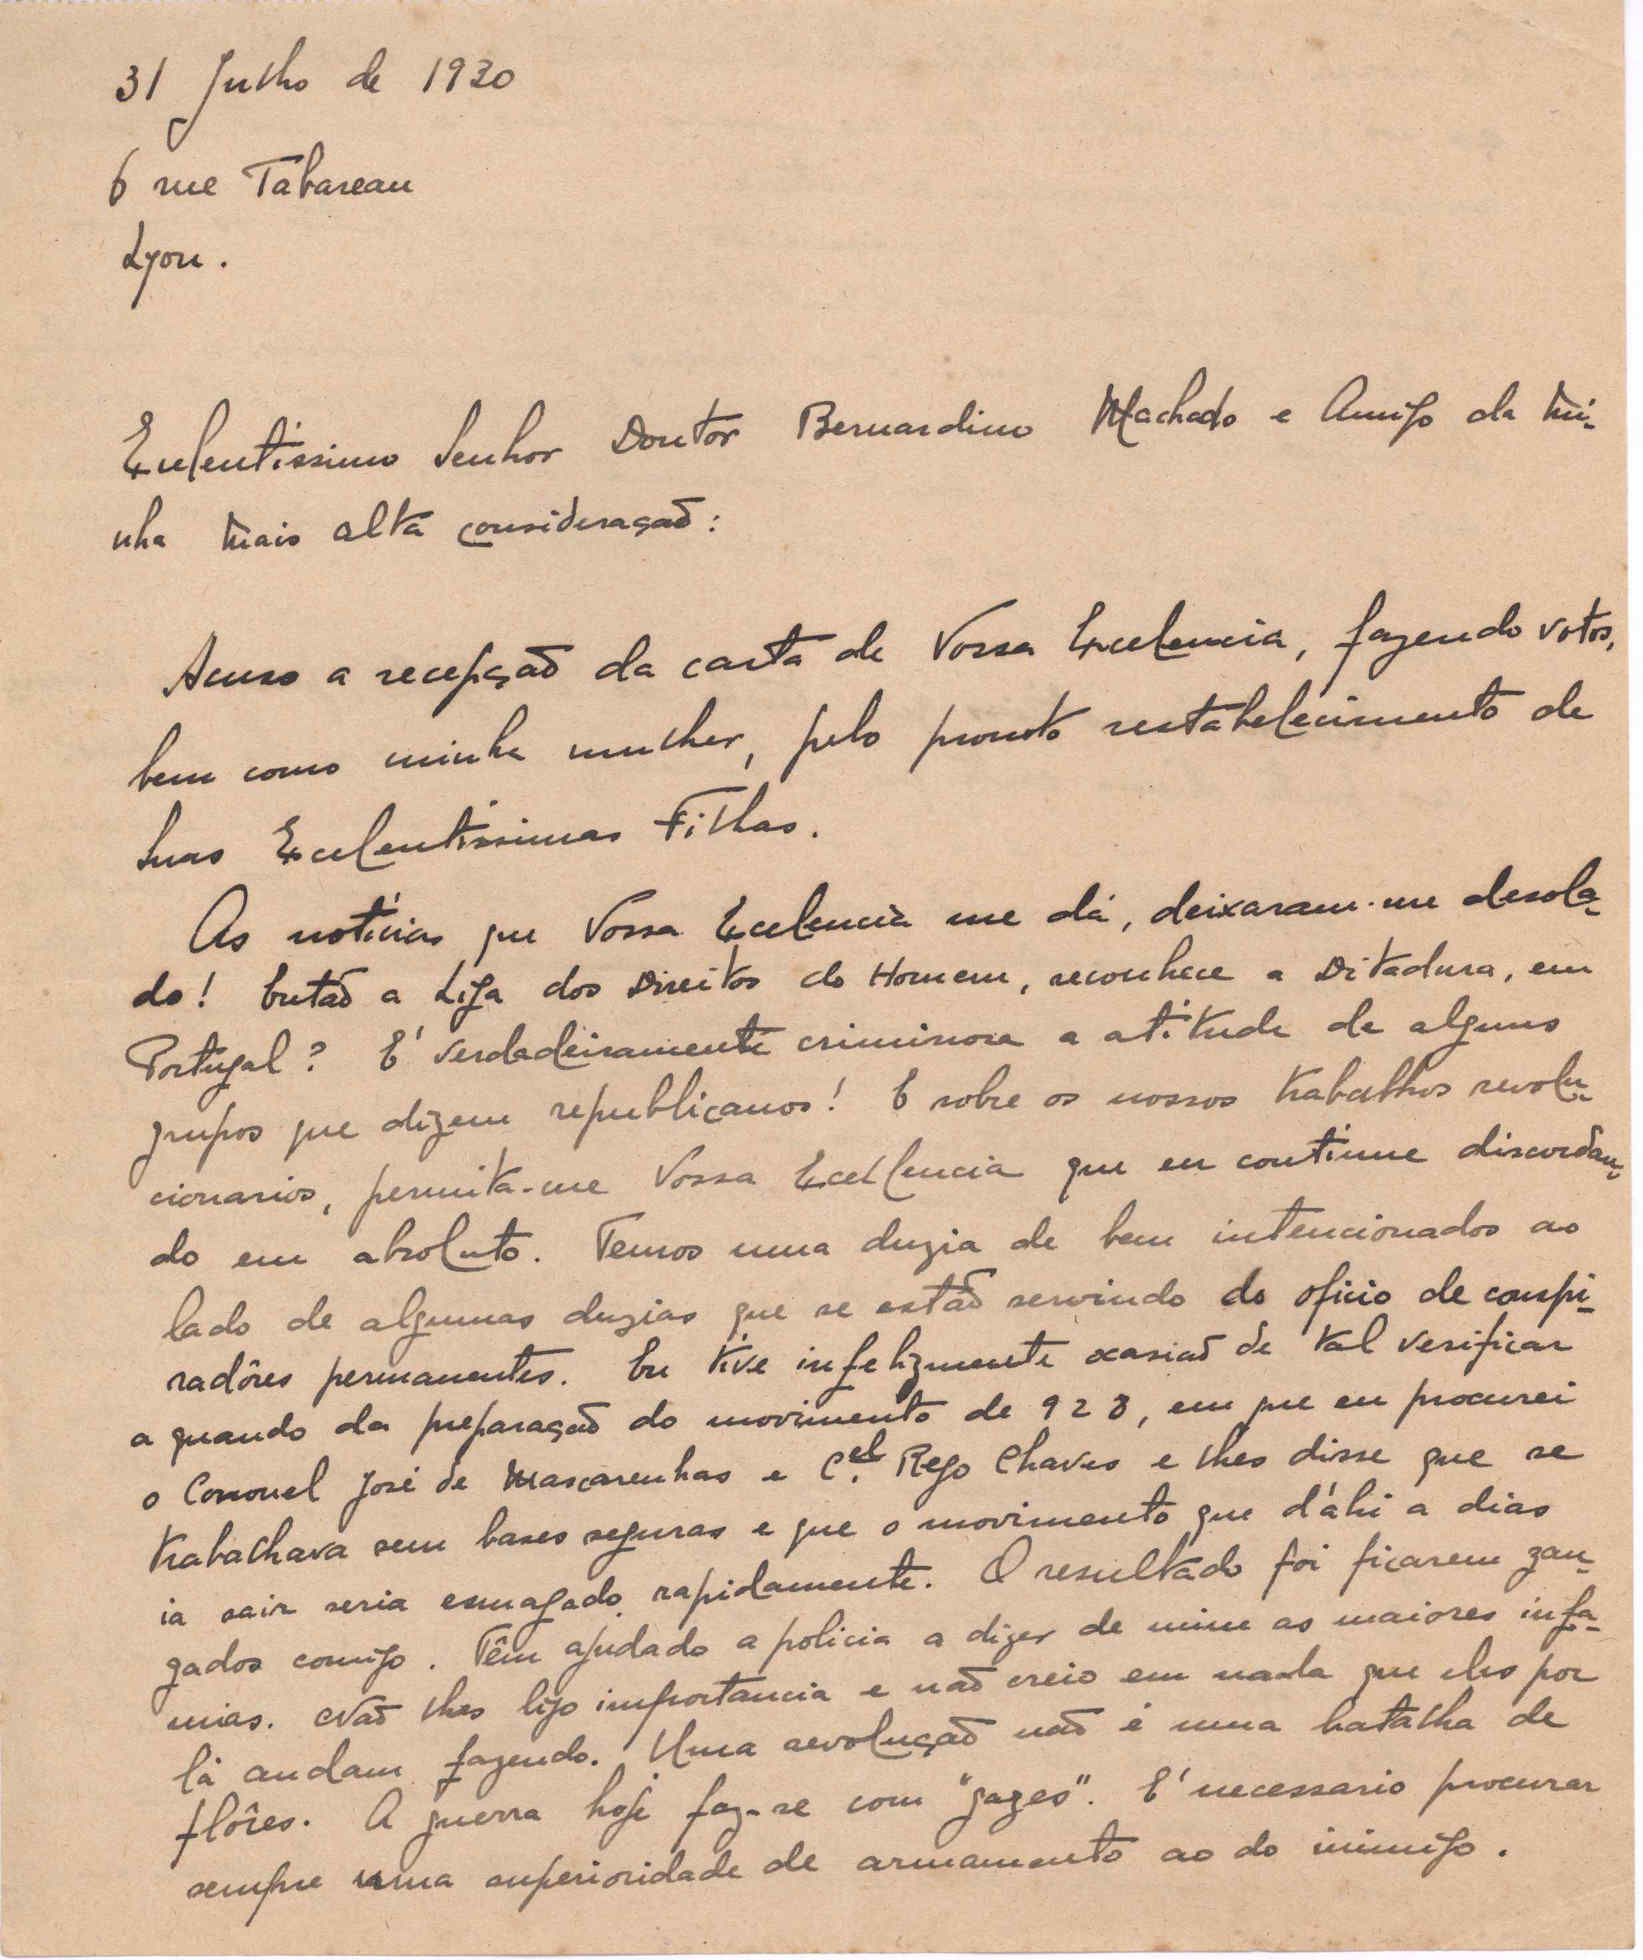 31 Julho de 1930
6 rue Tabareau
Lyon.
Exelentissimo Senhor Doutor Bernardino Machado e Amigo da mi-
nha mais alta consideração:
Acuso a recepção da carta de Vossa Excelencia, fazendo votos,
bem como minha mulher, pelo pronto restabelecimento de
Suas Excelentissimas Filhas.
As noticias que Vossa Excelencia me dá, deixaram-me desola-
do! Então a Liga dos Direitos do Homem, reconhece a Ditadura, em
Portugal? E' verdadeiramente criminosa a atitude de alguns
grupos que dizem republicanos! E sobre os nossos trabalhos revolu-
cionarios, permita-me Vossa Excellencia que eu continue discordan-
do em absoluto. Temos uma duzia de bem intencionados ao
lado de algumas duzias que se estão servindo do oficio de conspi-
radôres permanentes. Eu tive infelizmente ocasião de tal verificar
a quando da preparação do movimento de 928, em que eu procurei
o Coronel José de Mascarenhas e C.el Rego Chaves e lhes disse que se
trabalhava sem bases seguras e que o movimento que d'ahi a dias
ia sair seria esmagado rapidamente. O resultado foi ficarem zan-
gados comigo. Têm ajudado a policia a dizer de mim as maiores infa-
mias. Não lhes ligo importancia e não creio em nada que eles por
lá andam fazendo. Uma revolução não é uma batalha de
flôres. A guerra hoje faz-se com "gazes". E' necessario procurar
sempre uma superioridade de armamento ao do inimigo.